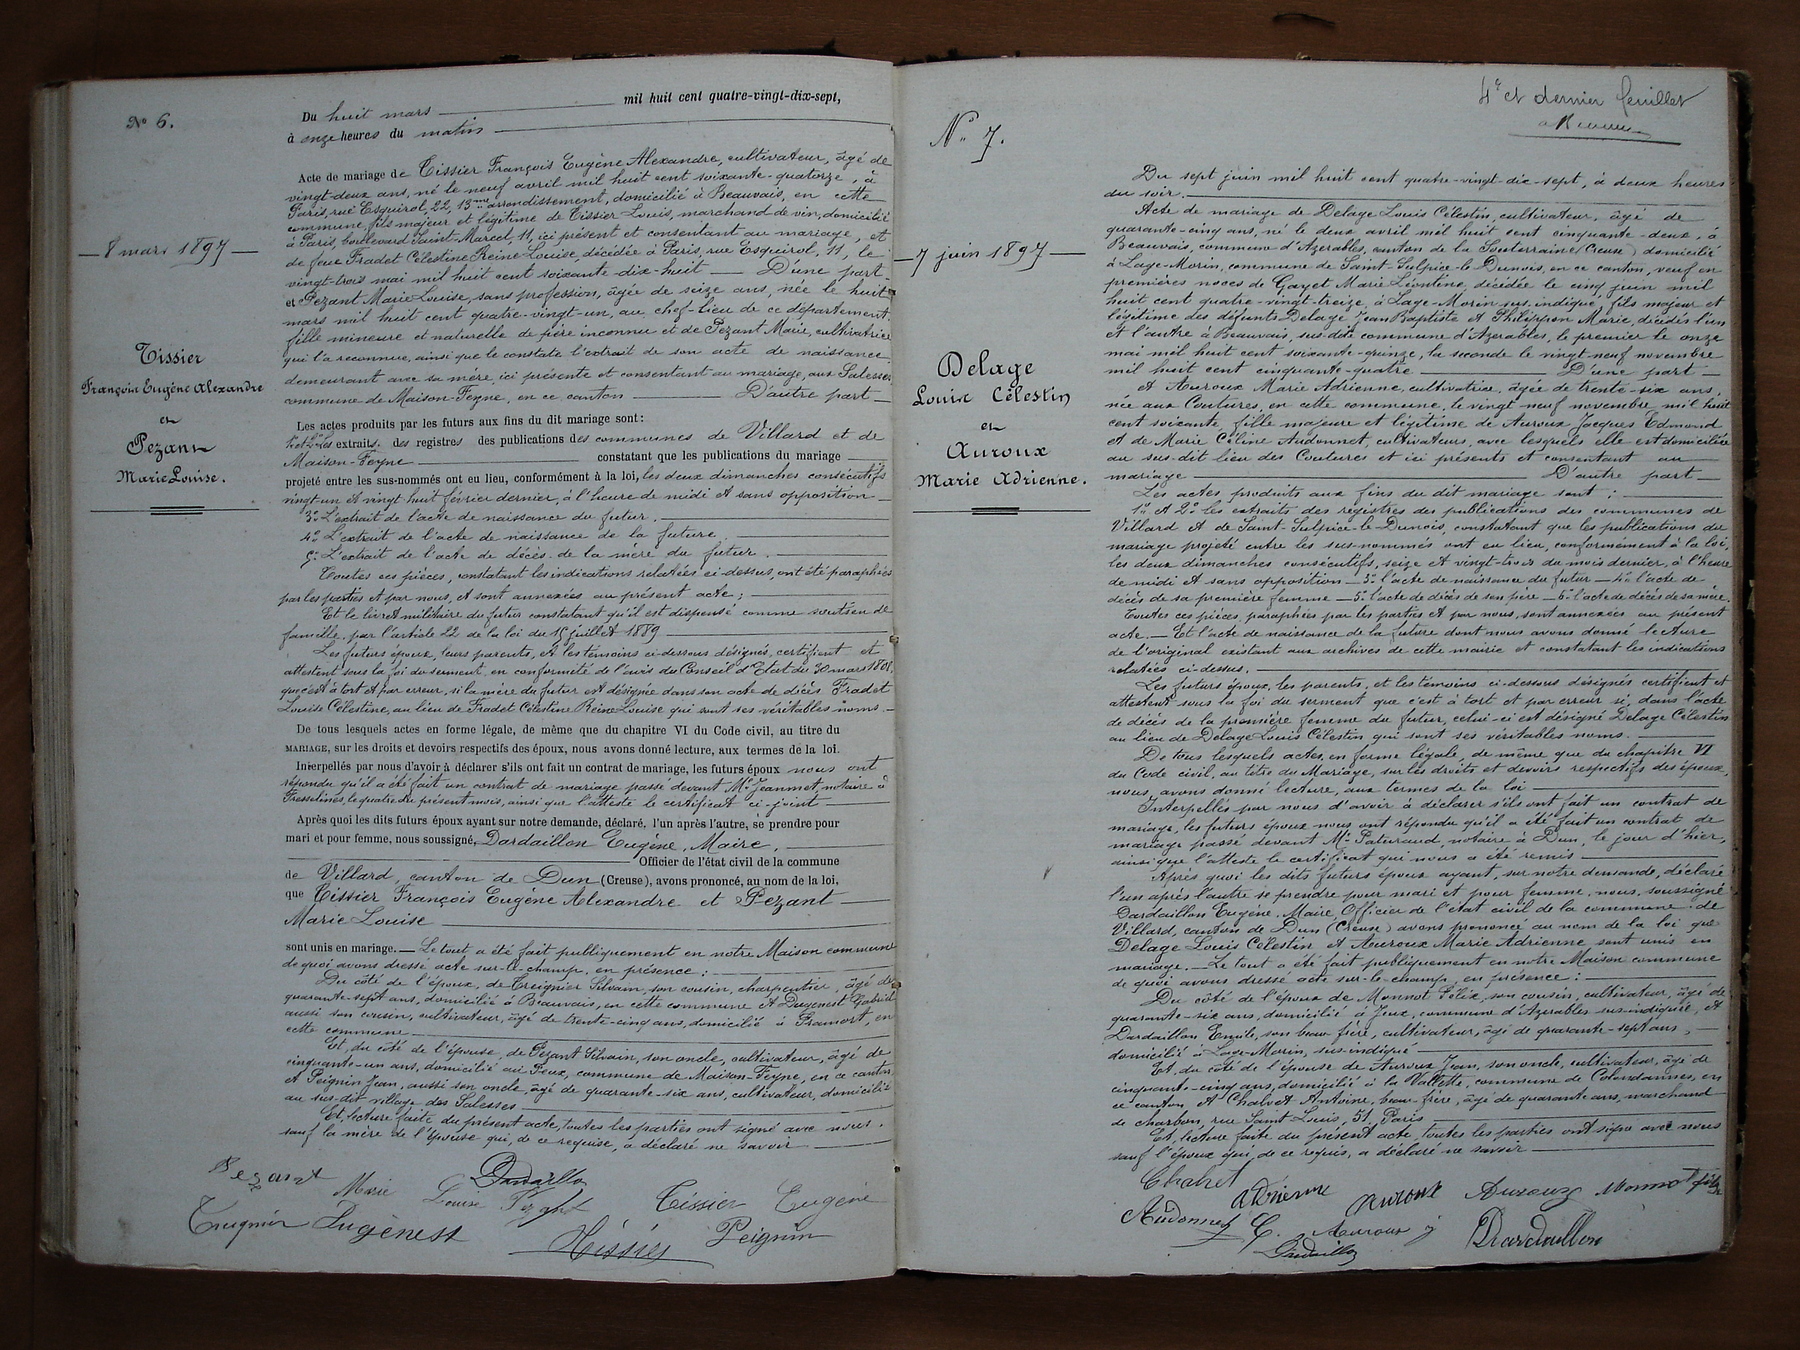 N° 6.
Du huit mars mil huit cent quatre-vingt-dix-sept,
à onze heures du matin
8 mars 1897
Tissier
François Eugène Alexandre
et
Pezant
Marie Louise.
Acte de mariage de Tissier François Eugène Alexandre, cultivateur, âgé de
vingt-deux ans, né le neuf avril mil huit cent soixante-quatorze, à
Paris, rue Esquirol, 22, 13me arrondissement, domicilié à Beauvais, en cette
commune, fils majeur et légitime de Tissier Louis, marchand de vin, domicilié
à Paris, boulevard Saint-Marcel, 11, ici présent et consentant au mariage, et
de feue Fradet Célestine Reine Louise, décédée à Paris, rue Esquirol, 11, le
vingt-trois mai mil huit cent soixante-dix-huit — D'une part
et Pezant Marie Louise, sans profession, âgée de seize ans, née le huit
mars mil huit cent quatre-vingt-un, au chef-lieu de ce département,
fille mineure et naturelle de père inconnu et de Pezant Marie, cultivatrice
qui l'a reconnue, ainsi que le constate l'extrait de son acte de naissance,
demeurant avec sa mère, ici présente et consentant au mariage, aux Salesses
commune de Maison-Feyne, en ce canton — D'autre part
Les actes produits par les futurs aux fins du dit mariage sont :
1° et 2° Les extraits des registres des publications des communes de Villard et de
Maison-Feyne constatant que les publications du mariage
projeté entre les sus-nommés ont eu lieu, conformément à la loi, les deux dimanches consécutifs
vingt-un et vingt huit février dernier, à l'heure de midi et sans opposition
3° L'extrait de l'acte de naissance du futur.
4° L'extrait de l'acte de naissance de la future.
5° L'extrait de l'acte de décès de la mère du futur.
Toutes ces pièces, constatant les indications relatées ci-dessus, ont été paraphées
par les parties et par nous, et sont annexées au présent acte ;
Et le livret militaire du futur constatant qu'il est dispensé comme soutien de
famille, par l'article 22 de la loi du 15 juillet 1889
Les futurs époux, leurs parents, et les témoins ci-dessous désignés, certifient et
attestent sous la foi du serment, en conformité de l'avis du Conseil d'Etat du 30 mars 1808,
que c'est à tort et par erreur, si la mère du futur est désignée dans son acte de décès Fradet
Louise Célestine, au lieu de Fradet Célestine Reine Louise qui sont ses véritables noms
De tous lesquels actes en forme légale, de même que du chapitre VI du Code civil, au titre du
MARIAGE, sur les droits et devoirs respectifs des époux, nous avons donné lecture, aux termes de la loi.
Interpellés par nous d'avoir à déclarer s'ils ont fait un contrat de mariage, les futurs époux nous ont
répondu qu'il a été fait un contrat de mariage passé devant Me Jeammet, notaire à
Fresselines, le quatre du présent mois, ainsi que l'atteste le certificat ci-joint
Après quoi les dits futurs époux ayant sur notre demande, déclaré, l'un après l'autre, se prendre pour
mari et pour femme, nous soussigné, Dardaillon Eugène, Maire,
Officier de l'état civil de la commune
de Villard, canton de Dun (Creuse), avons prononcé, au nom de la loi,
que Tissier François Eugène Alexandre et Pezant
Marie Louise
sont unis en mariage. — Le tout a été fait publiquement en notre Maison commune
de quoi avons dressé acte sur-le-champ, en présence :
Du côté de l'époux, de Treignier Silvain, son cousin, charpentier, âgé de
quarante-sept ans, domicilié à Beauvais, en cette commune et Dugenest Gabriel
aussi son cousin, cultivateur, âgé de trente-cinq ans, domicilié à Framort, en
cette commune
Et, du côté de l'épouse, de Pezant Silvain, son oncle, cultivateur, âgé de
cinquante-un ans, domicilié au Peux, commune de Maison-Feyne, en ce canton,
et Peignin Jean, aussi son oncle, âgé de quarante-six ans, cultivateur, domicilié
au sus-dit village des Salesses
Et, lecture faite du présent acte, toutes les parties ont signé avec nous,
sauf la mère de l'épouse qui, de ce requise, a déclaré ne savoir
Pezant Marie Louise Pezant Dardaillon Tissier Eugène
Treignier Dugenest Tissier Peignin
4e et dernier feuillet
N° 7.
7 juin 1897
Delage
Louis Célestin
et
Auroux
Marie Adrienne.
Du sept juin mil huit cent quatre-vingt-dix-sept, à deux heures
du soir.
Acte de mariage de Delage Louis Célestin, cultivateur, âgé de
quarante-cinq ans, né le deux avril mil huit cent cinquante-deux, à
Beauvais, commune d'Azerables, canton de la Souterraine (Creuse) domicilié
à Lage-Morin, commune de Saint-Sulpice-le-Dunois, en ce canton, veuf en
premières noces de Gayet Marie Léontine, décédée le cinq juin mil
huit cent quatre-vingt-treize, à Lage-Morin sus-indiqué, fils majeur et
légitime des défunts Delage Jean Baptiste et Philippon Marie, décédés l'un
et l'autre à Beauvais, sus-dite commune d'Azerables, le premier le onze
mai mil huit cent soixante-quinze, la seconde le vingt-neuf novembre
mil huit cent cinquante-quatre — D'une part
et Auroux Marie Adrienne, cultivatrice, âgée de trente-six ans,
née aux Coutures, en cette commune, le vingt neuf novembre mil huit
cent soixante, fille majeure et légitime de Auroux Jacques Edmond
et de Marie Céline Audonnet, cultivateurs, avec lesquels elle est domiciliée
au sus-dit lieu des Coutures et ici présents et consentant au
mariage — D'autre part
Les actes produits aux fins du dit mariage sont :
1° et 2° Les extraits des registres des publications des communes de
Villard et de Saint-Sulpice-le-Dunois, constatant que les publications du
mariage projeté entre les sus-nommés ont eu lieu, conformément à la loi,
les deux dimanches consécutifs, seize et vingt-trois du mois dernier, à l'heure
de midi et sans opposition — 3° l'acte de naissance du futur — 4° l'acte de
décès de sa première femme — 5° l'acte de décès de son père — 6° l'acte de décès de sa mère.
Toutes ces pièces, paraphées par les parties et par nous, sont annexées au présent
acte. — Et l'acte de naissance de la future dont nous avons donné lecture
de l'original existant aux archives de cette mairie et constatant les indications
relatées ci-dessus.
Les futurs époux, les parents, et les témoins ci-dessous désignés certifient et
attestent sous la foi du serment que c'est à tort et par erreur si, dans l'acte
de décès de la première femme du futur, celui-ci est désigné Delage Célestin
au lieu de Delage Louis Célestin qui sont ses véritables noms.
De tous lesquels actes, en forme légale, de même que du chapitre VI
du Code civil, au titre du Mariage, sur les droits et devoirs respectifs des époux,
nous, avons donné lecture, aux termes de la loi
Interpellés par nous d'avoir à déclarer s'ils ont fait un contrat de
mariage, les futurs époux nous ont répondu qu'il a été fait un contrat de
mariage passé devant Me Paturaud, notaire à Dun, le jour d'hier,
ainsi que l'atteste le certificat qui nous a été remis
Après quoi les dits futurs époux ayant, sur notre demande, déclaré
l'un après l'autre se prendre pour mari et pour femme, nous, soussigné
Dardaillon Eugène, Maire, Officier de l'état civil de la commune de
Villard, canton de Dun (Creuse) avons prononcé au nom de la loi que
Delage Louis Célestin et Auroux Marie Adrienne sont unis en
mariage. — Le tout a été fait publiquement en notre Maison commune
de quoi avons dressé acte sur-le-champ, en présence :
Du côté de l'époux de Monnot Félix, son cousin, cultivateur, âgé de
quarante-six ans, domicilié à Jeux, commune d'Azerables sus-indiquée, et
Dardaillon Emile, son beau-frère, cultivateur, âgé de quarante-sept ans,
domicilié à Lage-Morin, sus-indiqué
Et, du côté de l'épouse de Auroux Jean, son oncle, cultivateur, âgé de
cinquante-cinq ans, domicilié à la Valette, commune de Colondannes, en
ce canton et Chalvet Antoine, beau-frère, âgé de quarante ans, marchand
de charbon, rue Saint Louis, 51, Paris
Et, lecture faite du présent acte, toutes les parties ont signé avec nous
sauf l'époux qui, de ce requis, a déclaré ne savoir
Chalvet Adrienne Auroux Auroux Monnot félix
Audonnet C. Auroux j Dardaillon
Dardaillon